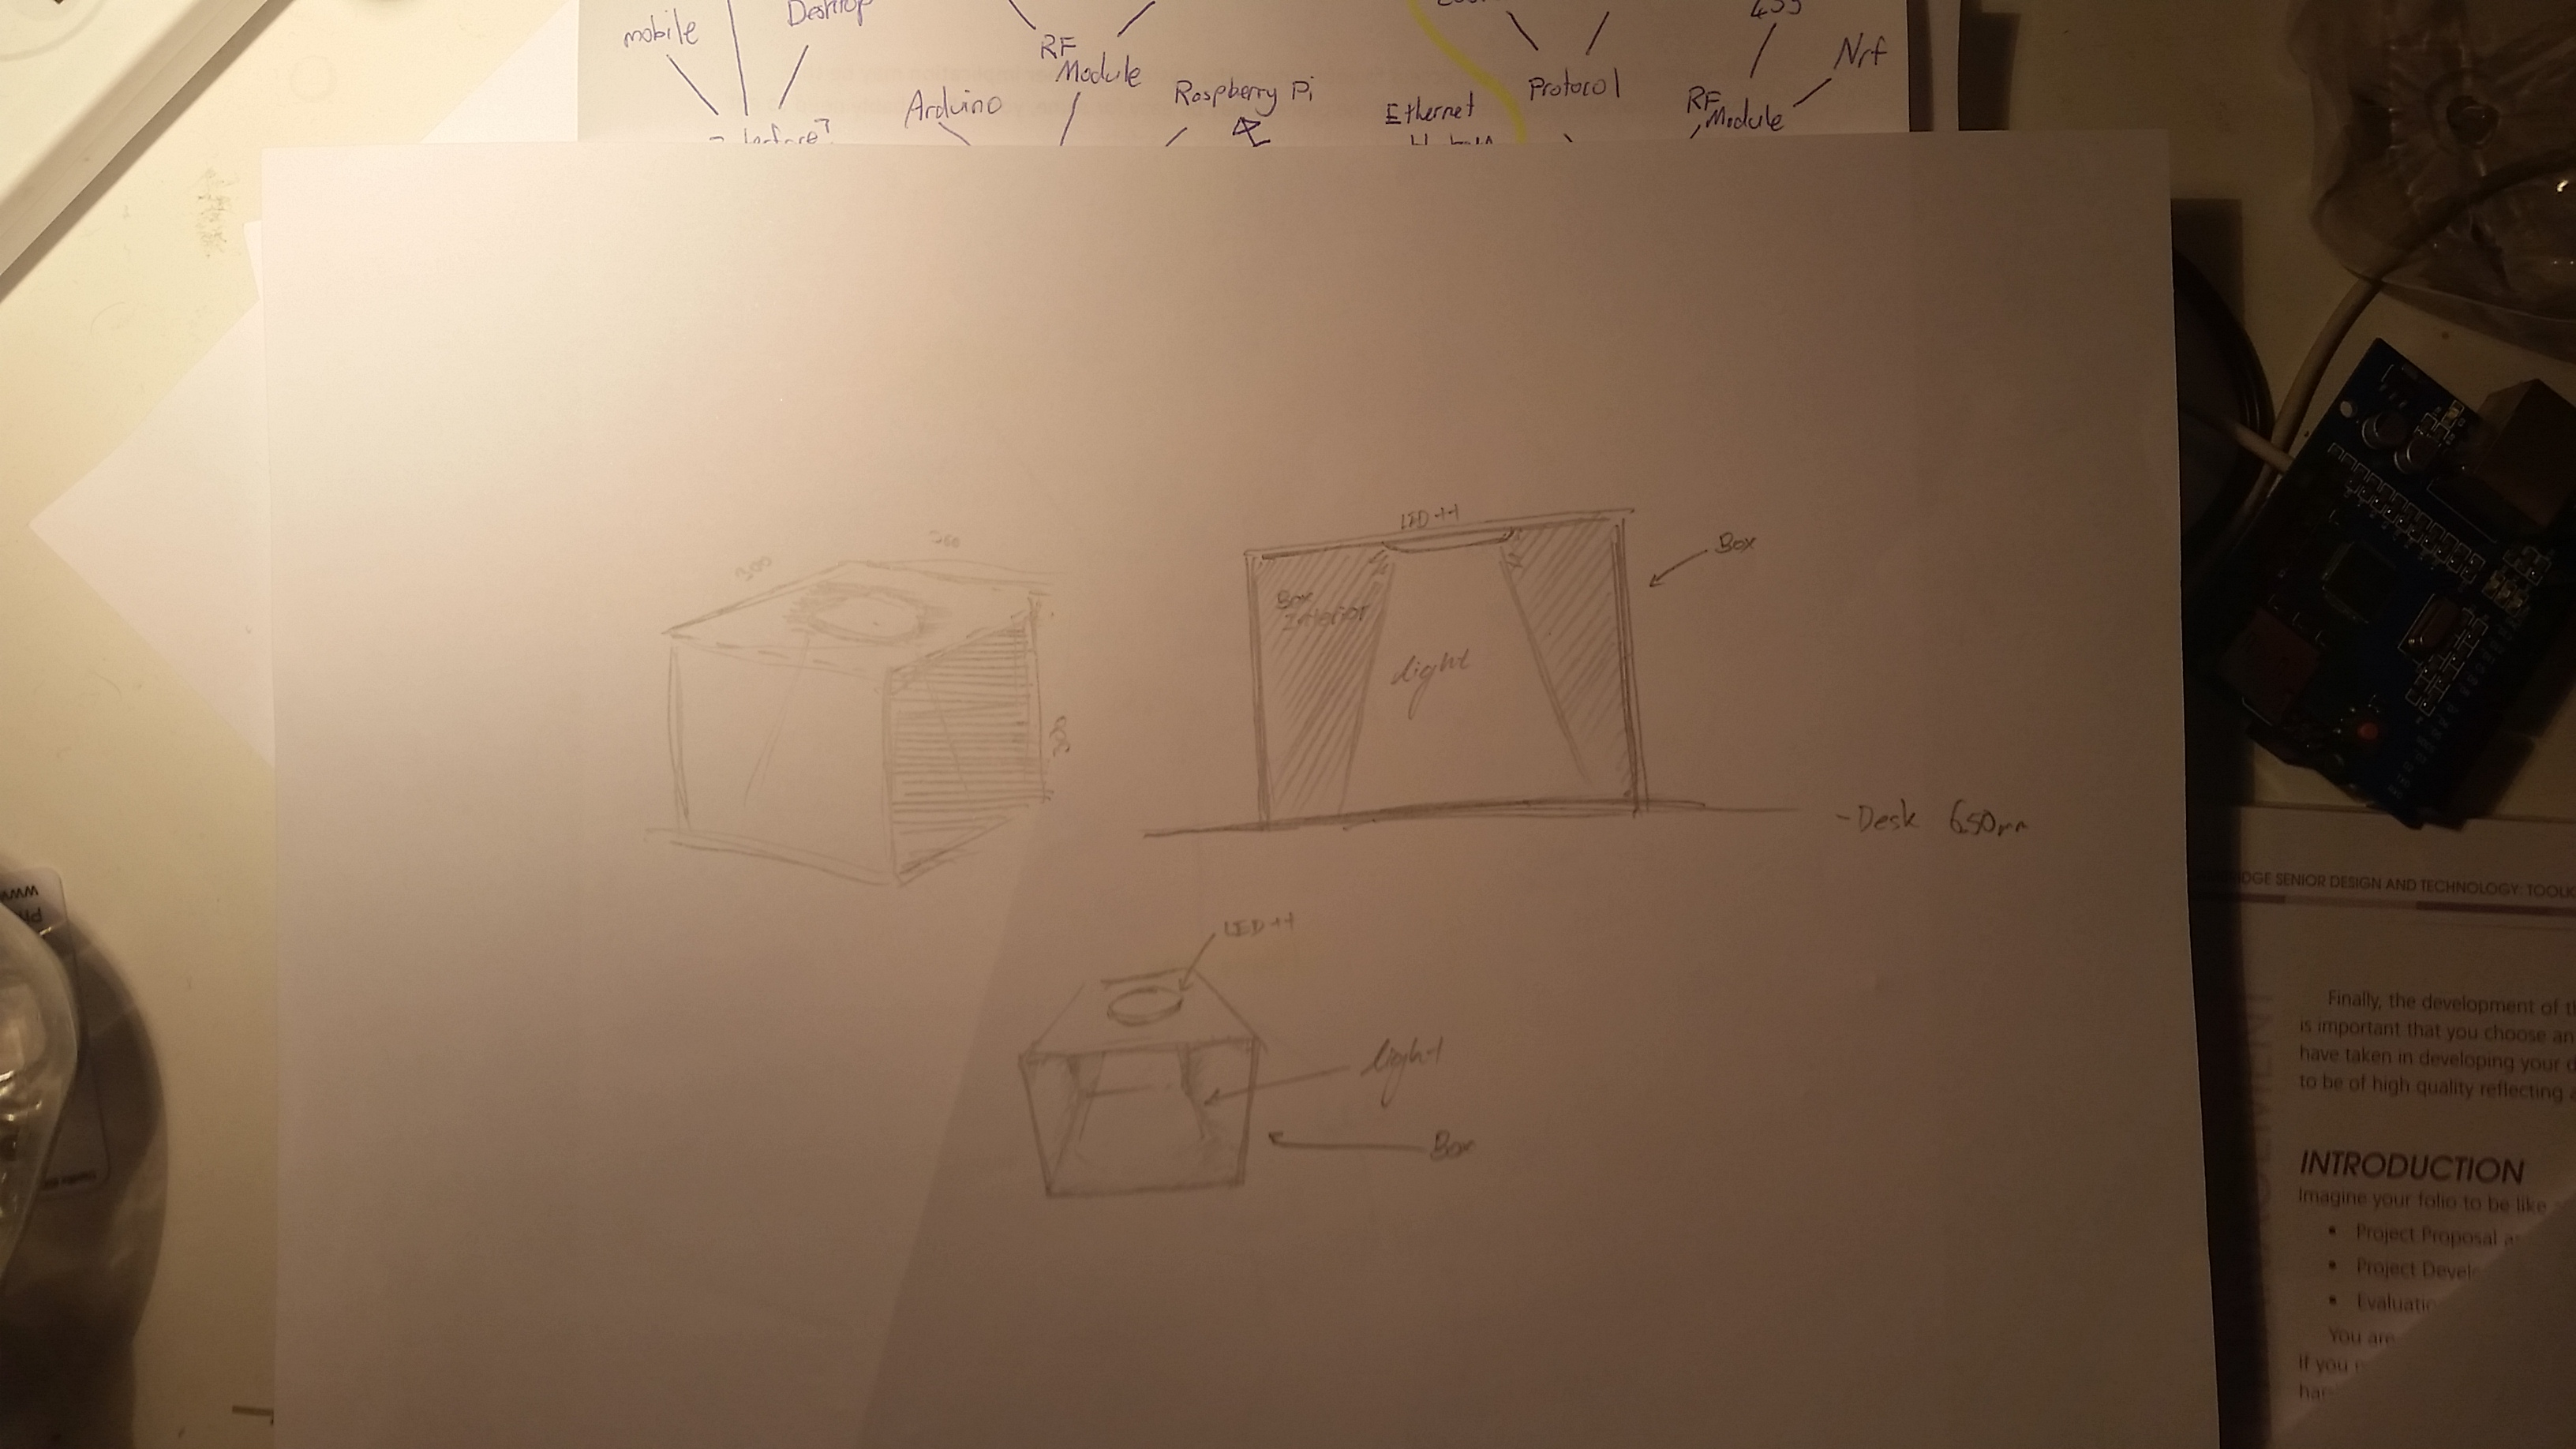 mobile
Desktop
RF
Module
Arduino
Raspberry Pi
Ethernet
Protocol
RF
Module
Nrf
300
300
LED
Box
Box
Interior
light
- Desk 650mm
LED
light
Box
www
DGE SENIOR DESIGN AND TECHNOLOGY: TOOL
Finally, the development of
is important that you choose an
have taken in developing your
to be of high quality reflecting
INTRODUCTION
Imagine your folio to be like
• Project Proposal
• Project
•
You are
If you